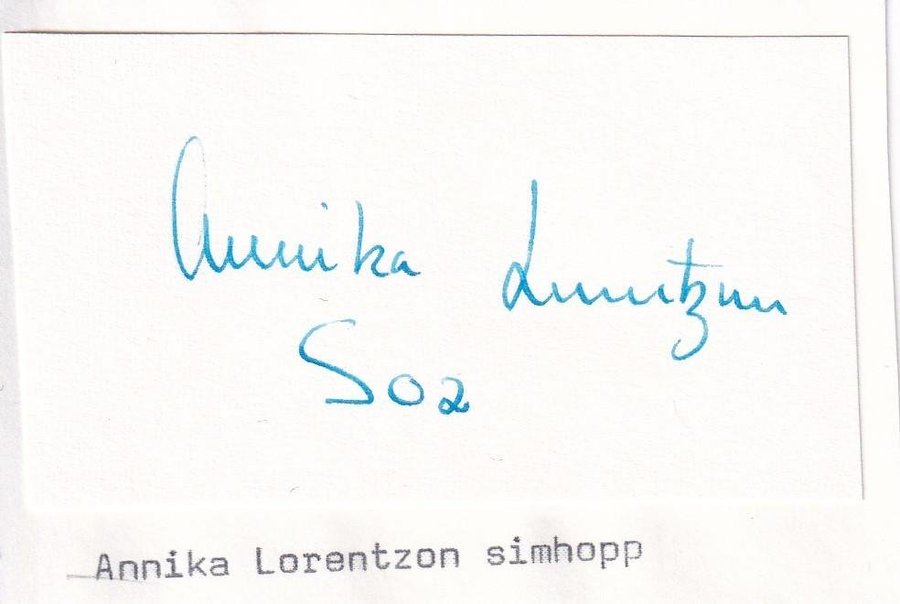 Annika Lorentzon
S02
Annika Lorentzon simhopp